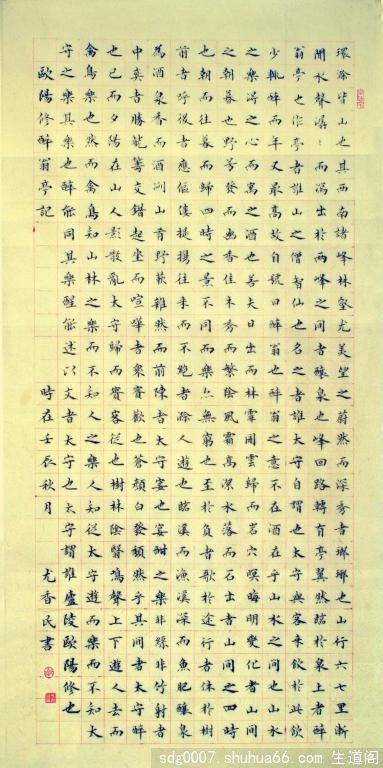 環滁皆山也其西南諸峰林壑尤美望之蔚然而深秀者瑯琊也山行六七里漸
聞水聲潺〻而瀉出於兩峰之間者釀泉也峰回路轉有亭翼然臨於泉上者醉
翁亭也作亭者誰山之僧智仙也名之者誰太守自謂也太守與客來飲於此飲
少輒醉而年又最高故自號曰醉翁也醉翁之意不在酒在乎山水之間也山水
之樂得之心而寓之酒也若夫日出而林霏開雲歸而岩穴暝晦明變化者山間
之朝暮也野芳發而幽香佳木秀而繁陰風霜高潔水落而石出者山間之四時
也朝而往暮而歸四時之景不同而樂亦無窮也至於負者歌於途行者休於樹
前者呼後者應傴僂提攜往來而不絕者滁人遊也臨溪而漁溪深而魚肥釀泉
為酒泉香而酒洌山肴野蔌雜然而前陳者太守宴也宴酣之樂非絲非竹射者
中奕者勝觥籌交錯起坐而喧嘩者眾賓歡也蒼顏白發頹然乎其間者太守醉
也已而夕陽在山人影散亂太守歸而賓客從也樹林陰翳鳴聲上下遊人去而
禽鳥樂也然而禽鳥知山林之樂而不知人之樂人知從太守遊而樂而不知太
守之樂其樂也醉能同其樂醒能述以文者太守也太守謂誰廬陵歐陽修也
歐陽修醉翁亭記 時在壬辰秋月 尤香民書
sdg0007.shuhua66.com 生道阁